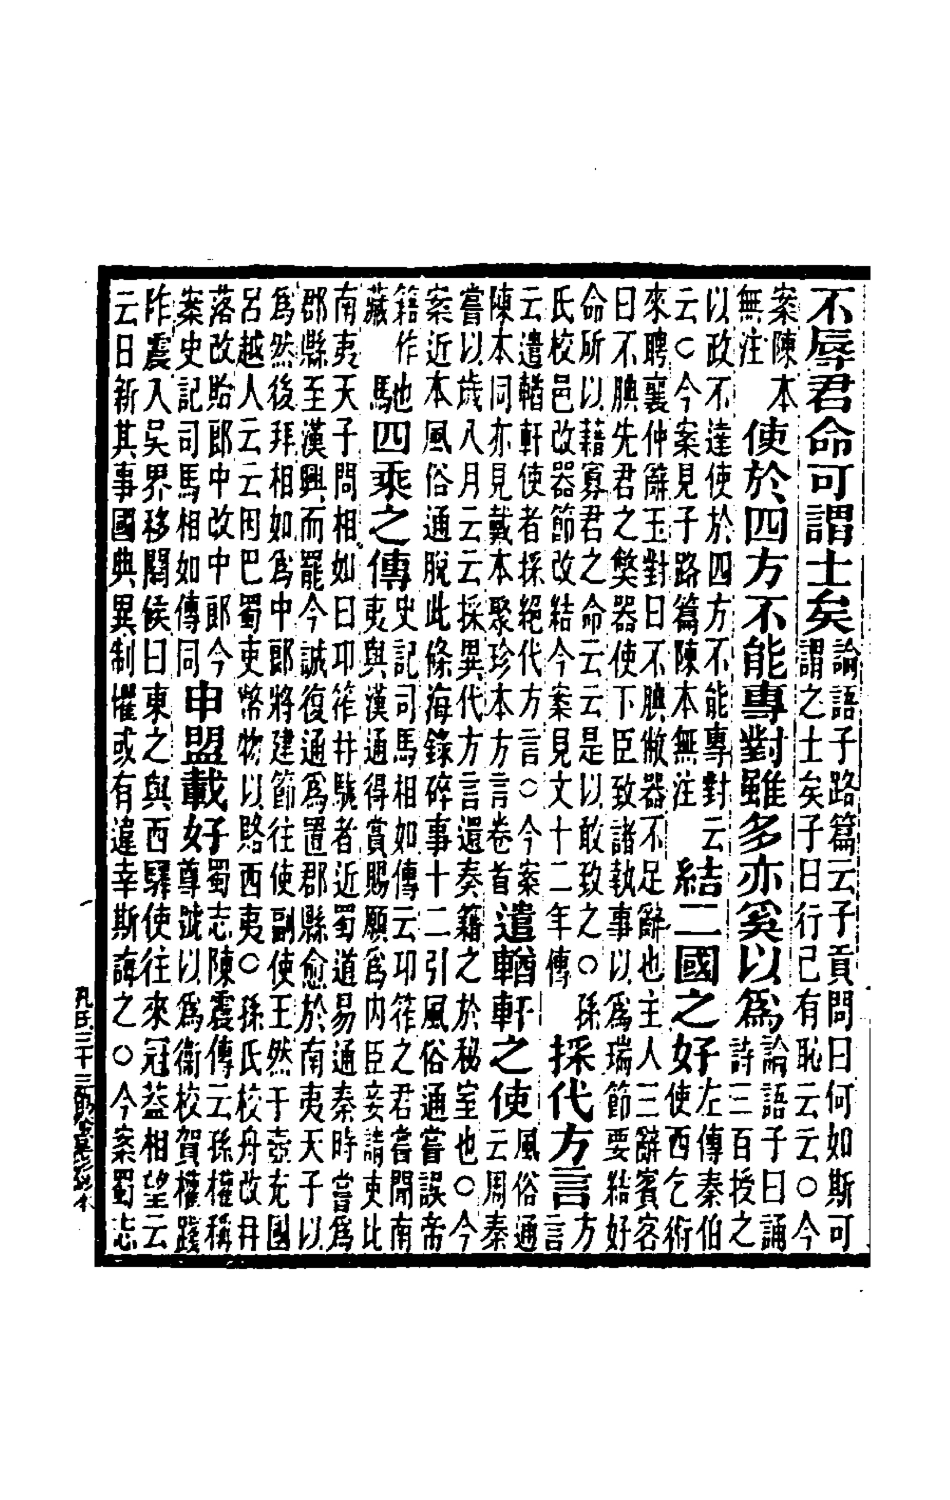 不辱君命可謂士矣論語子路篇云子貢問曰何如斯可
謂之士矣子曰行已有恥云云○今
案陳本
無注
使於四方不能專對雖多亦奚以爲論語子曰誦
詩三百授之
以政不達使於四方不能專對云
云○今案見子路篇陳本無注
結二國之好左傳秦伯
使西乞術
來聘襄仲辭玉對曰不腆敝器不足辭也主人三辭賓客
曰不腆先君之弊器使下臣致諸執事以爲瑞節要結好
命所以藉寡君之命云云是以敢致之○孫
氏校邑改器節改結今案見文十二年傳
採代方言方
言
云遣輶軒使者採絕代方言○今案
陳本同亦見戴本聚珍本方言卷首
遣輶軒之使風俗通
云周秦
嘗以歲八月云云採異代方言還奏籍之於秘室也○今
案近本風俗通脫此條海錄碎事十二引風俗通嘗誤帝
籍作也
藏
馳四乘之傳史記司馬相如傳云卭筰之君嘗聞南
夷與漢通得賞賜願爲內臣妾請吏比
南夷天子問相如曰卭筰井駹者近蜀道易通秦時嘗爲
郡縣至漢興而罷今誠復通爲置郡縣愈於南夷天子以
爲然後拜相如爲中郎將建節往使副使王然于壺充國
呂越人云云因巴蜀吏幣物以賂西夷○孫氏校舟改冄
落改貽郎中改中郎今
案史記司馬相如傳同
申盟載好蜀志陳震傳云孫權稱
尊號以爲衛校賀權踐
阼震入吳界移關侯曰東之與西驛使往來冠蓋相望云
云日新其事國典異制懼或有違幸斯誨之○今案蜀志
孔氏三十三萬卷堂影鈔本